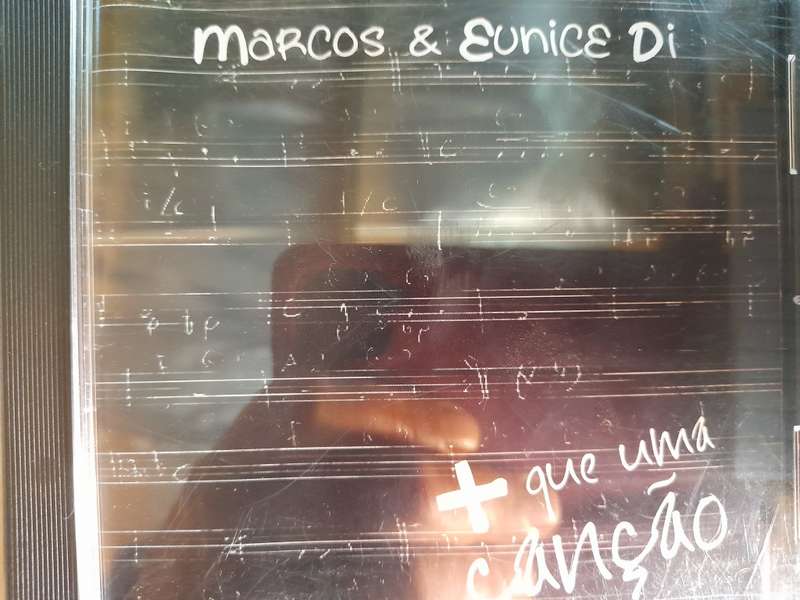 Marcos & Eunice Di
+ que uma
canção